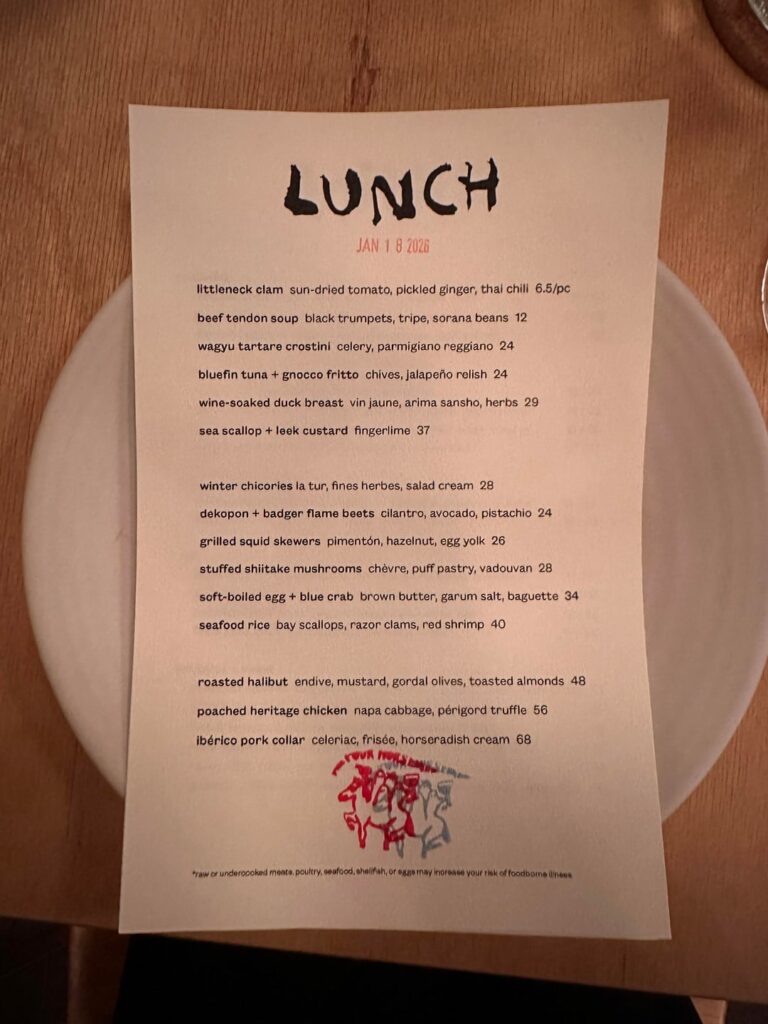 LUNCH
JAN 18 2026
littleneck clam sun-dried tomato, pickled ginger, thai chili 6.5/pc
beef tendon soup black trumpets, tripe, sorana beans 12
wagyu tartare crostini celery, parmigiano reggiano 24
bluefin tuna + gnocco fritto chives, jalapeño relish 24
wine-soaked duck breast vin jaune, arima sansho, herbs 29
sea scallop + leek custard fingerlime 37
winter chicories la tur, fines herbes, salad cream 28
dekopon + badger flame beets cilantro, avocado, pistachio 24
grilled squid skewers pimentón, hazelnut, egg yolk 26
stuffed shiitake mushrooms chèvre, puff pastry, vadouvan 28
soft-boiled egg + blue crab brown butter, garum salt, baguette 34
seafood rice bay scallops, razor clams, red shrimp 40
roasted halibut endive, mustard, gordal olives, toasted almonds 48
poached heritage chicken napa cabbage, périgord truffle 56
ibérico pork collar celeriac, frisée, horseradish cream 68
FOUR
*raw or undercooked meats, poultry, seafood, shellfish, or eggs may increase your risk of foodborne illness